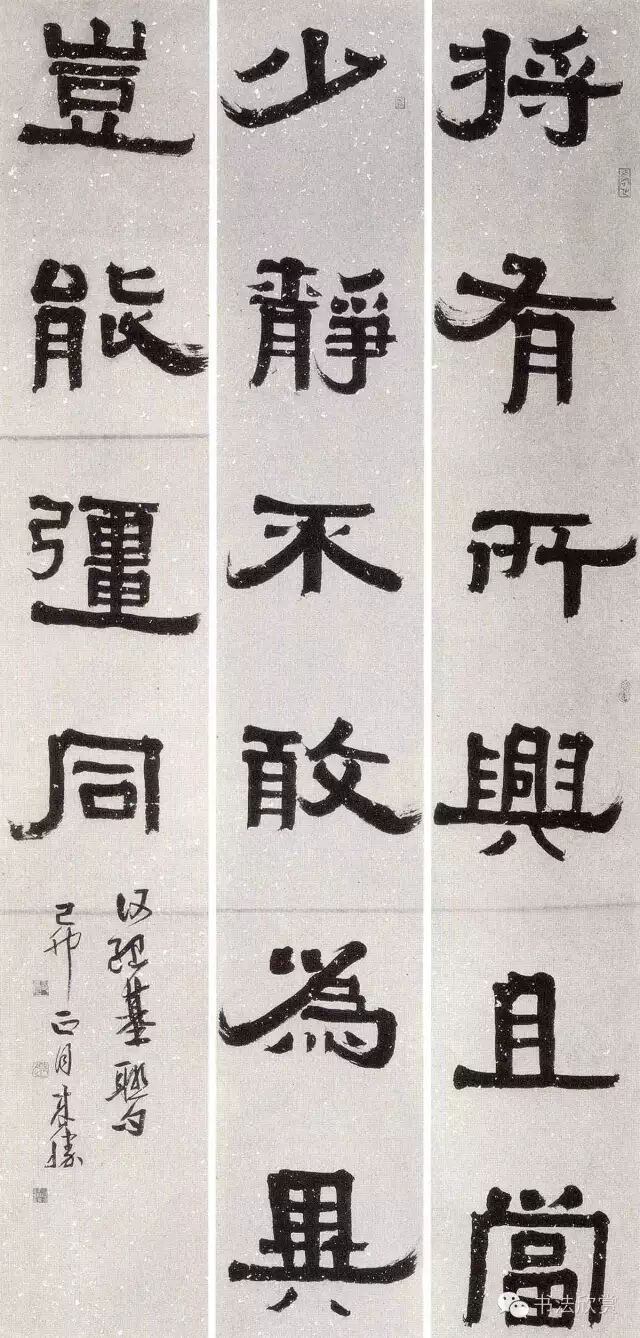 將有所興且當
少靜不敢為異
豈能彊同
何紹基聯句
己卯正月
书法欣赏